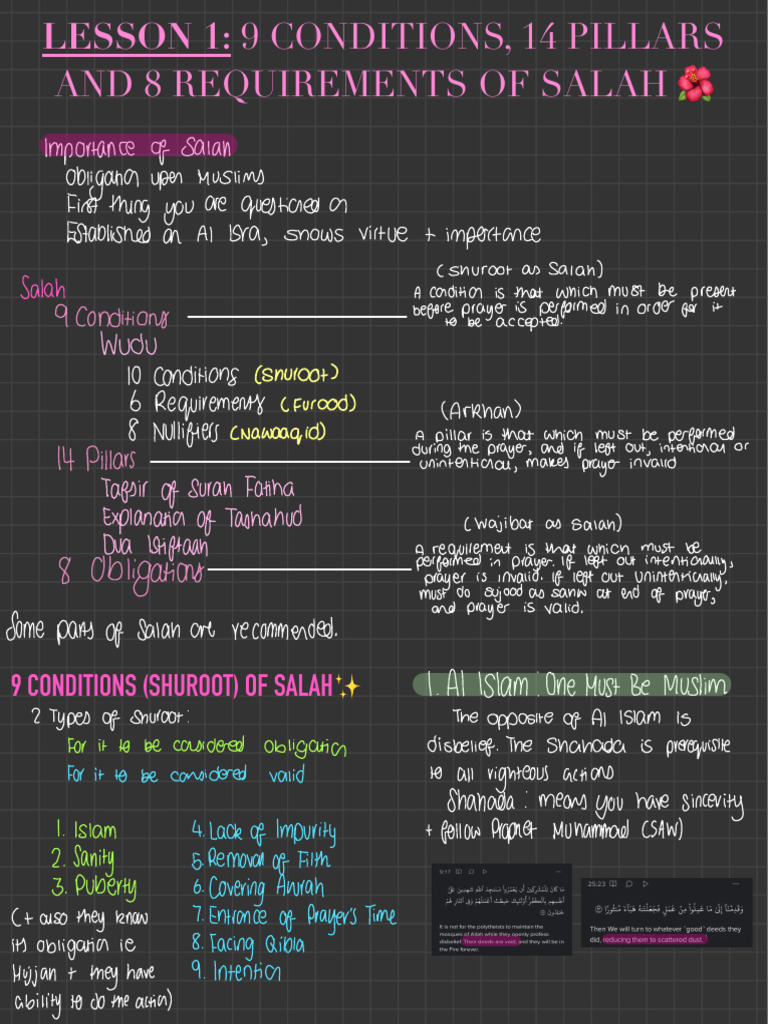 LESSON 1: 9 CONDITIONS, 14 PILLARS
AND 8 REQUIREMENTS OF SALAH
Importance of Salah
Obligation upon Muslims
First thing you are questioned on
Established on Al Isra, shows virtue + importance
Salah
9 Conditions
(Shuroot as Salah)
A condition is that which must be present
before prayer is performed in order for it
to be accepted.
Wudu
10 Conditions (Shuroot)
6 Requirements (Furood)
8 Nullifiers (Nawaaqid)
14 Pillars
(Arkhan)
A pillar is that which must be performed
during the prayer, and if left out, intentional or
unintentional, makes prayer invalid
Tafsir of Surah Fatiha
Explanation of Tashahud
Dua Istiftaah
8 Obligations
(Wajibat as Salah)
A requirement is that which must be
performed in prayer. If left out intentionally,
prayer is invalid. If left out unintentionally,
must do sujood as sahw at end of prayer,
and prayer is valid.
Some parts of Salah are recommended.
9 CONDITIONS (SHUROOT) OF SALAH
2 Types of Shuroot:
For it to be considered obligation
For it to be considered valid
1. Islam
2. Sanity
3. Puberty
(+ also they know
its obligation ie
Hujjah + they have
ability to do the action)
4. Lack of Impurity
5. Removal of Filth
6. Covering Awrah
7. Entrance of Prayer's Time
8. Facing Qibla
9. Intention
1. Al Islam: One Must Be Muslim
The opposite of Al Islam is
disbelief. The Shahada is prerequisite
to all righteous actions
Shahada: means you have sincerity
+ follow Prophet Muhammad (SAW)
9:17
مَا كَانَ لِلْمُشْرِكِينَ أَن يَعْمُرُوا۟ مَسَـٰجِدَ ٱللَّهِ شَـٰهِدِينَ عَلَىٰٓ
أَنفُسِهِم بِٱلْكُفْرِ ۚ أُو۟لَـٰٓئِكَ حَبِطَتْ أَعْمَـٰلُهُمْ وَفِى ٱلنَّارِ هُمْ
خَـٰلِدُونَ
It is not for the polytheists to maintain the
mosques of Allah while they openly profess
disbelief. Their deeds are void, and they will be in
the Fire forever.
25:23
وَقَدِمْنَآ إِلَىٰ مَا عَمِلُوا۟ مِنْ عَمَلٍ فَجَعَلْنَـٰهُ هَبَآءً مَّنثُورًا
Then We will turn to whatever ˹good˺ deeds they
did, reducing them to scattered dust.